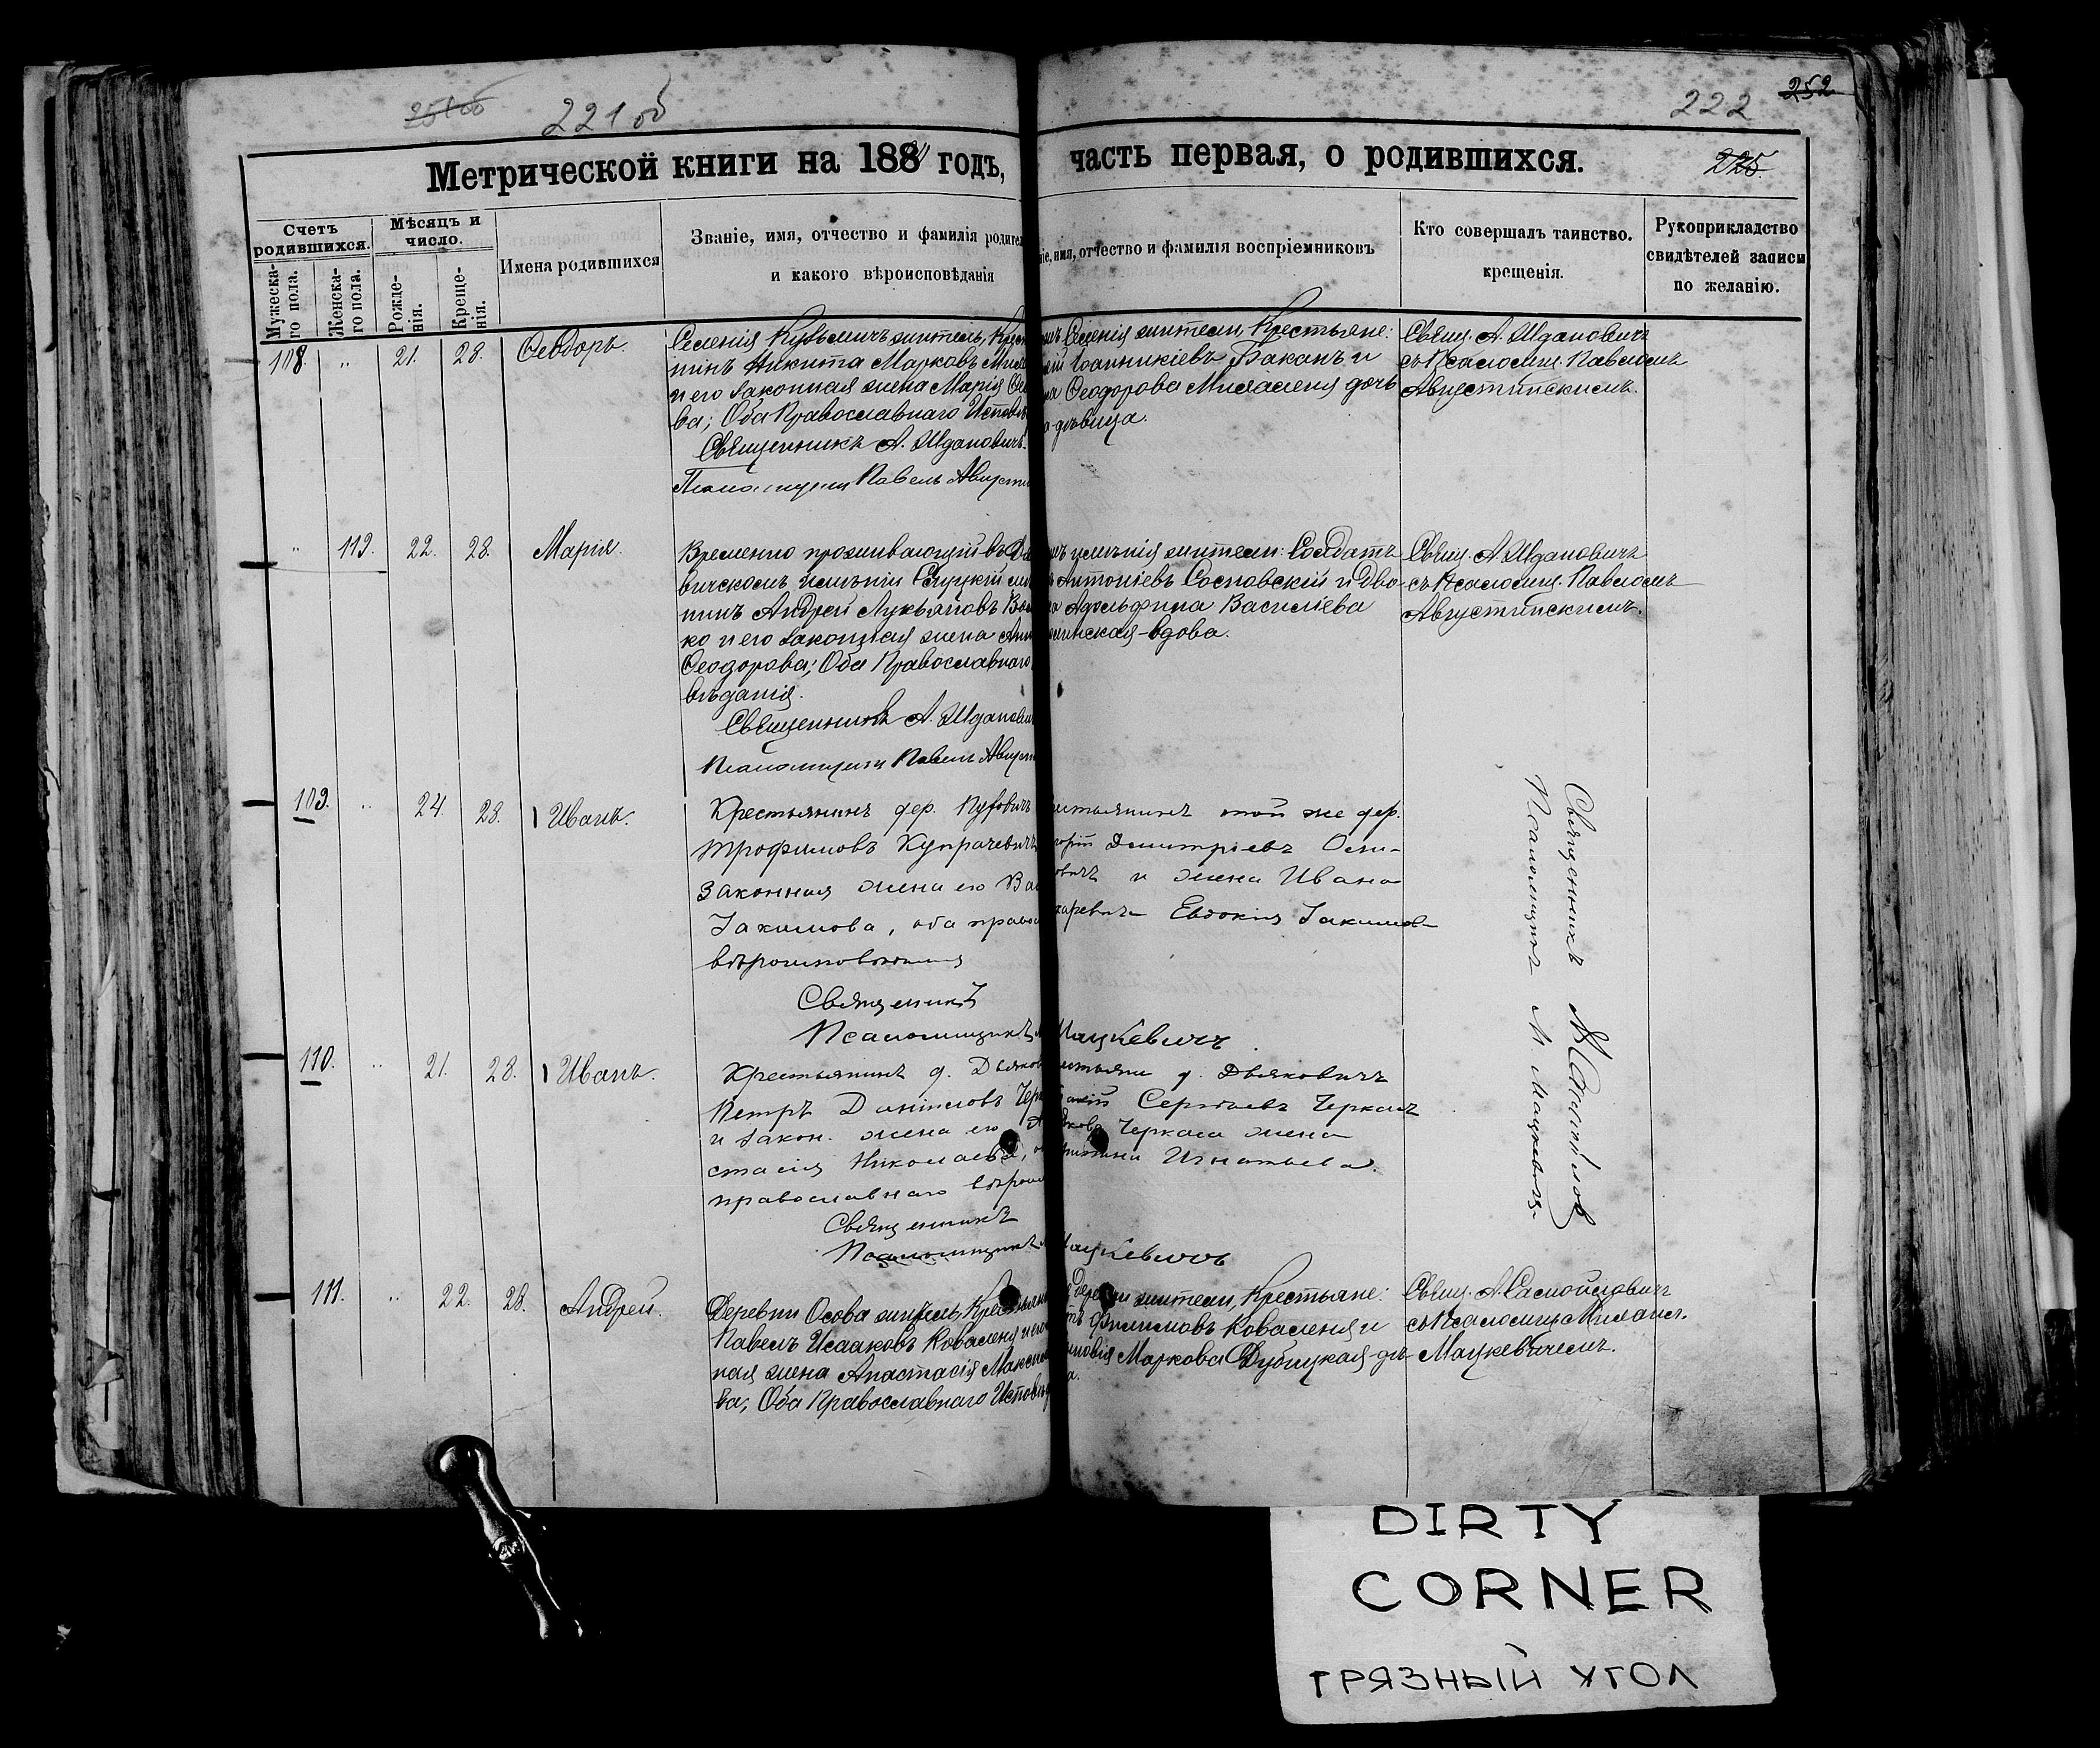 221 об
222
252
225
Метрической книги на 188 годъ,
часть первая, о родившихся.
Счетъ родившихся.
Мужеска-
го пола.
Женска-
го пола.
Мѣсяцъ и число.
Рожде-
нія.
Креще-
нія.
Имена родившихся
Званіе, имя, отчество и фамилія родител
и какого вѣроисповѣданія
іе, имя, отчество и фамилія воспріемниковъ
Кто совершалъ таинство.
крещенія.
Рукоприкладство
свидѣтелей записи
по желанію.
108. " 21. 28. Ѳеодоръ.
Селенія житель, Крест
нинъ Никита Марковъ
и его законная жена Марія Ѳео
ва; Оба Православнаго Исповѣ
Священникъ А. Ждановичъ.
Павелъ Августи
Селенія жители, Крестьяне:
Іоанникіевъ Баканъ и
на Ѳеодорова дочь
дѣвица.
Свящ. А. Ждановичъ
съ Псаломщ. Павломъ
Августинскимъ.
" 119. 22. 28. Марія.
Временно проживающій въ
вичскомъ имѣніи Слуцкій мѣ
нинъ Андрей Лукьяновъ
ко и его законная жена Анн
Ѳеодорова; Оба Православнаго
вѣданія.
Священникъ А. Жданови
Псаломщикъ Павелъ Августи
имѣнія жители: Солдатъ
Антоніевъ Сосновскій и Дво
Адольфина Василіева
минская - вдова.
Свящ. А. Ждановичъ
съ Псаломщ. Павломъ
Августинскимъ.
109. " 24. 28. Иванъ.
Крестьянинъ дер.
Трофимовъ
законная жена его Ва
Іакимова, оба правос
вѣроисповѣданія
Священникъ
Псаломщикъ Мацкевичъ
стьянинъ той же дер.
горій Димитріевъ Оси-
овичъ и жена Ивана
Евдокія Іакимов
Священникъ
Псаломщикъ М. Мацкевичъ.
110. " 21. 28. Иванъ.
Крестьянинъ д. Дьяков
Петръ Даніиловъ Чер
и закон. жена его А
стасія Николаева, о
православнаго вѣроис
Священникъ
Псаломщикъ Мацкевичъ
стьяне д. Дьяковичъ
Сергѣевъ Черкасъ
Черкаса жена
Игнатьева.
111. " 22. 28. Андрей.
Деревни Осова житель, Крестьяни
Павелъ Исааковъ Коваленя и его
ная жена Анастасія Максимо
ва; Оба Православнаго Исповѣд
деревни жители, Крестьяне:
Филимовъ Коваленя и
Маркова Дубицкая - дѣ-
Свящ. А. Самойловичъ
съ Псаломщ. Михаил.
Мацкевичемъ.
DIRTY
CORNER
ГРЯЗНЫЙ УГОЛ